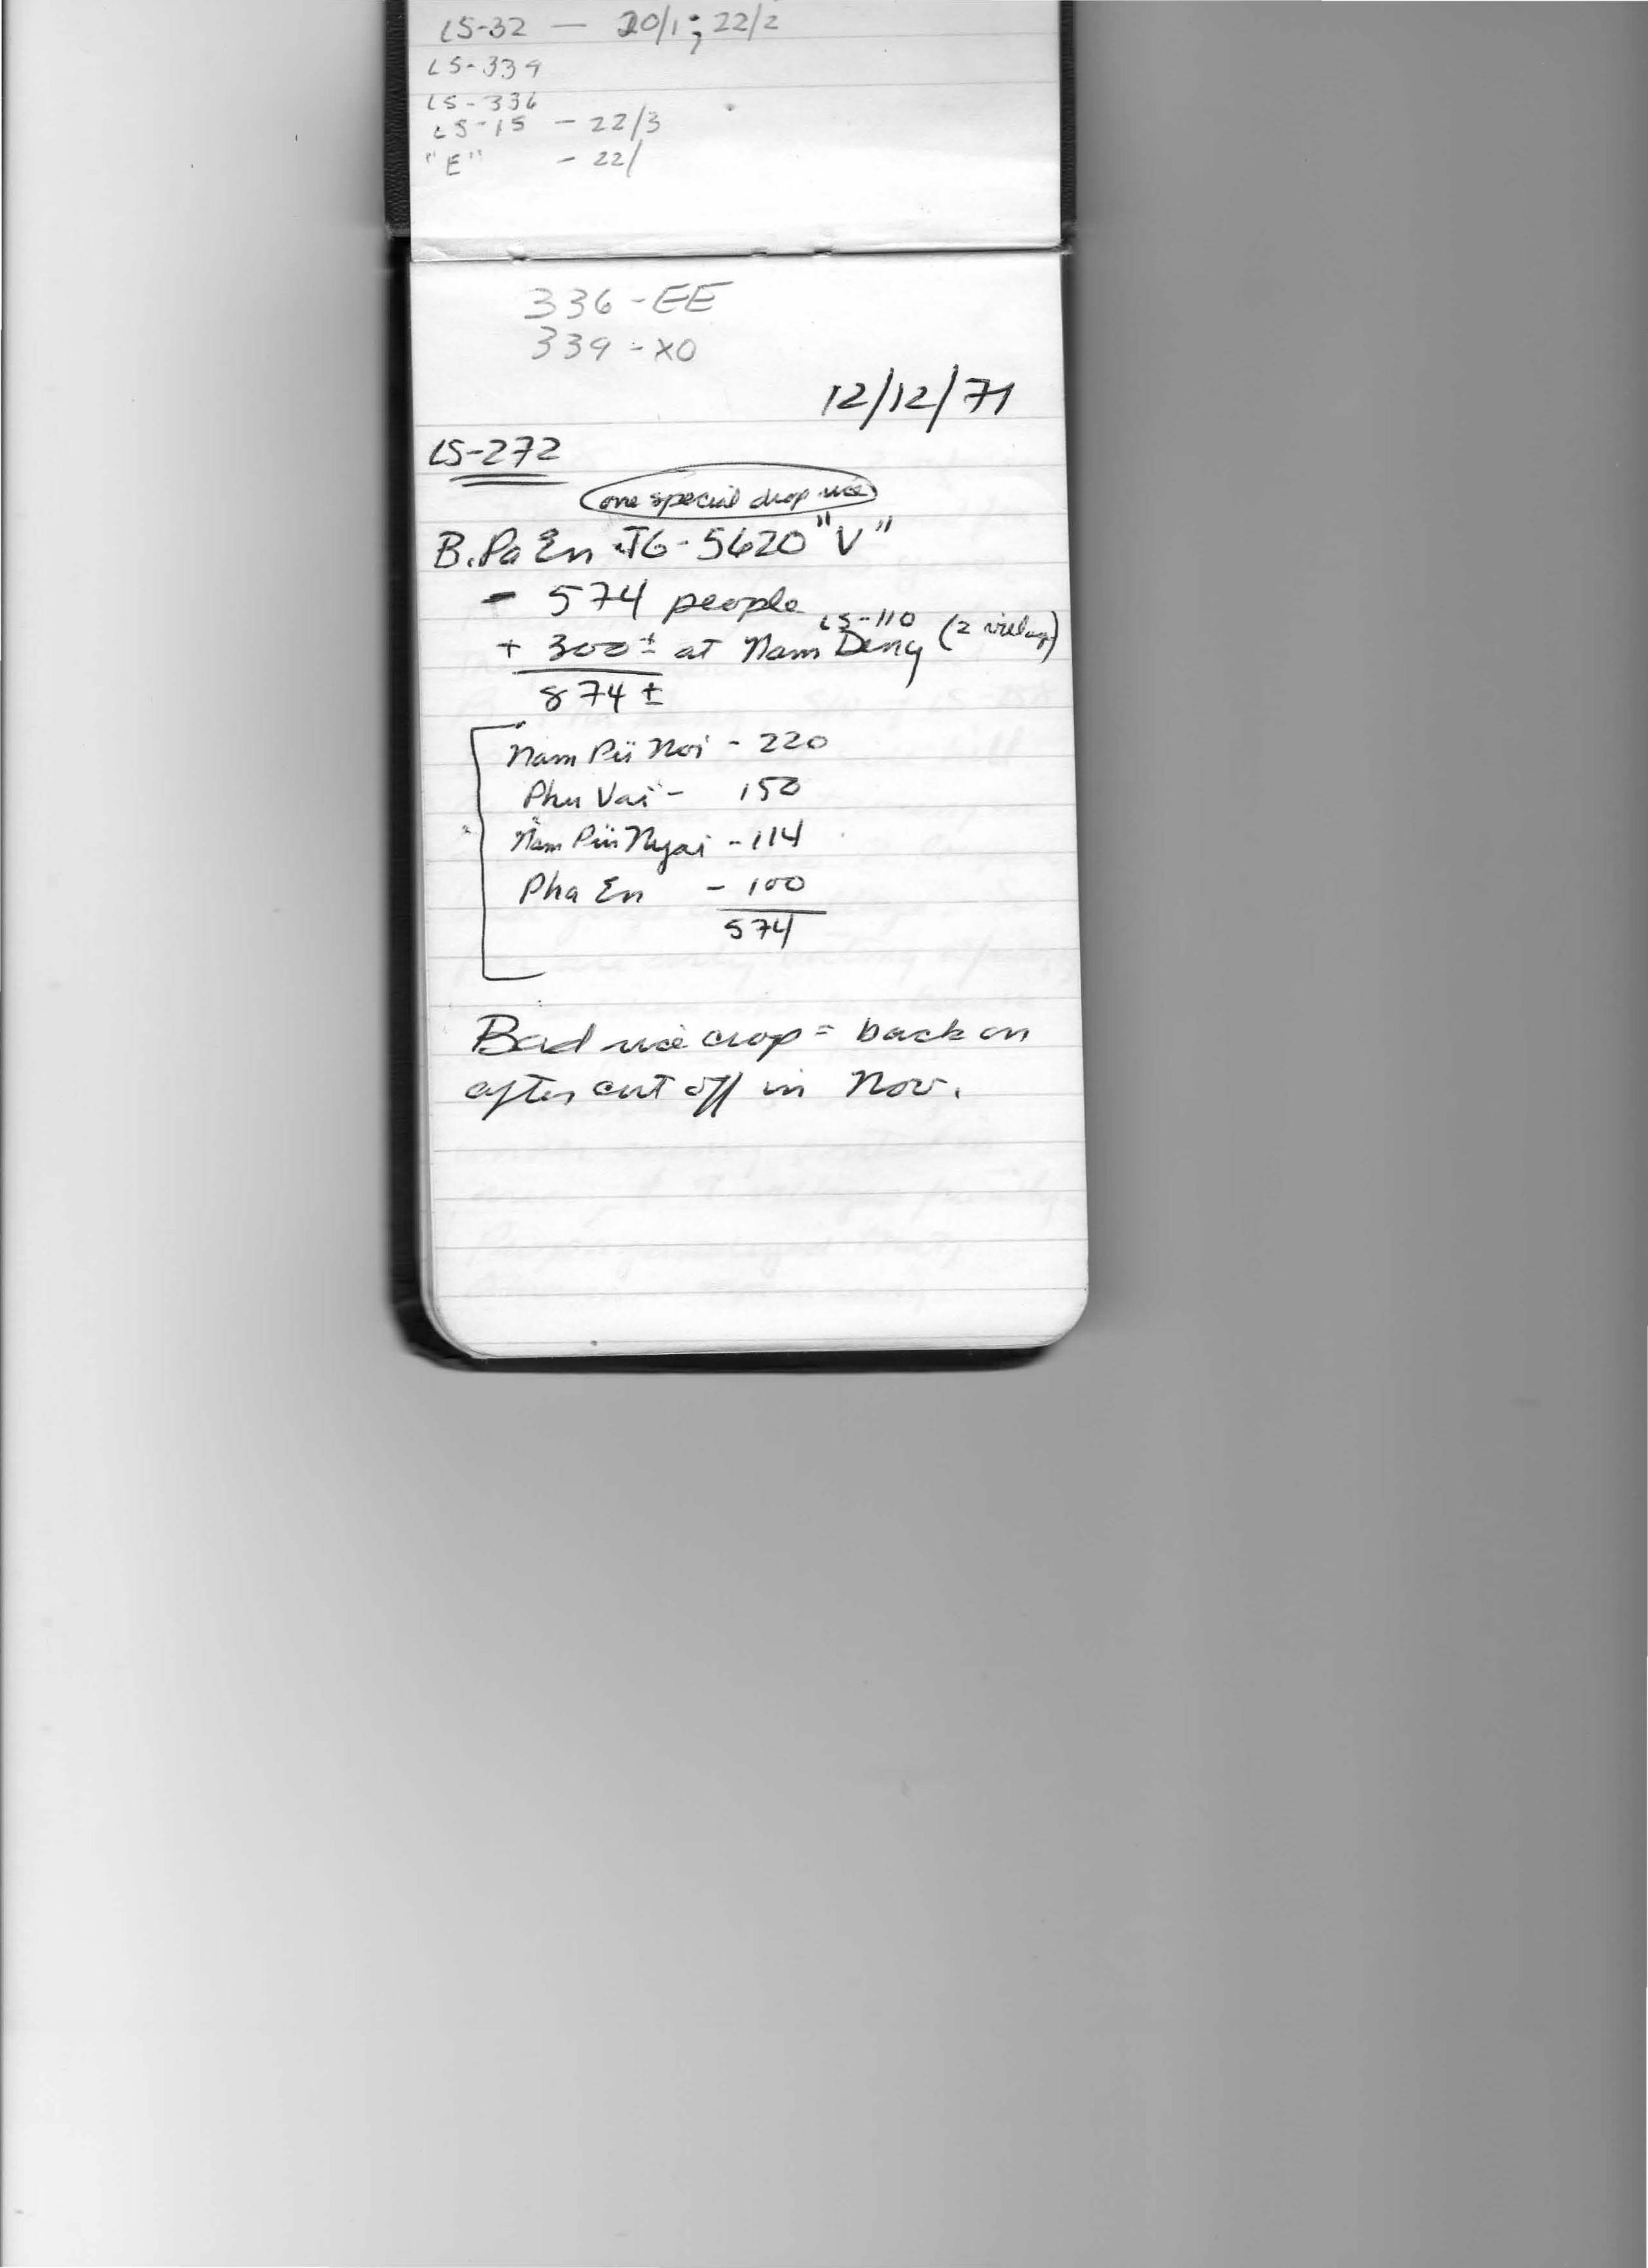 LS-32 — 20/1; 22/2
LS-339
LS-336
LS-15 - 22/3
"E" - 22/
336-EE
339-XO
12/12/71
LS-272
one special drop rice
B. Pa En TG-5620 "V"
- 574 people
LS-110
+ 300± at Nam Deng (2 villages)
874±
Nam Pü Noi - 220
Phu Vai - 150
Nam Pü Nyai - 114
Pha En - 100
574
Bad rice crop = back on
after cut off in Nov.